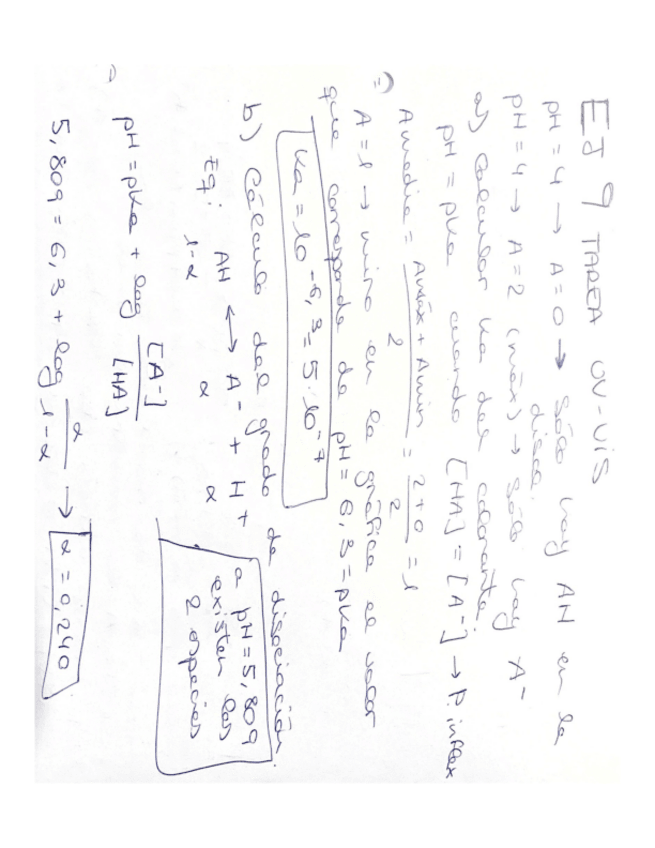 EJ 9 TAREA UV-VIS
pH = 4 → A = 0 → Sólo hay AH en la
disoc.
pH = 4 → A = 2 (máx) → Sólo hay A⁻
a) Calcular Ka del colorante.
pH = pKa cuando [HA] = [A⁻] → P. inflex
A media = (Amáx + Amin)/2 = (2+0)/2 = 1
A = 1 → miro en la gráfica el valor
que corresponde de pH = 6,3 = pKa
Ka = 10^-6,3 = 5·10⁻⁷
b) Cálculo del grado de disociación.
Eq: AH ⟷ A⁻ + H⁺
1-α α α
a pH = 5,809
existen las
2 especies
pH = pKa + log [A⁻]/[HA]
5,809 = 6,3 + log α/(1-α) → α = 0,240